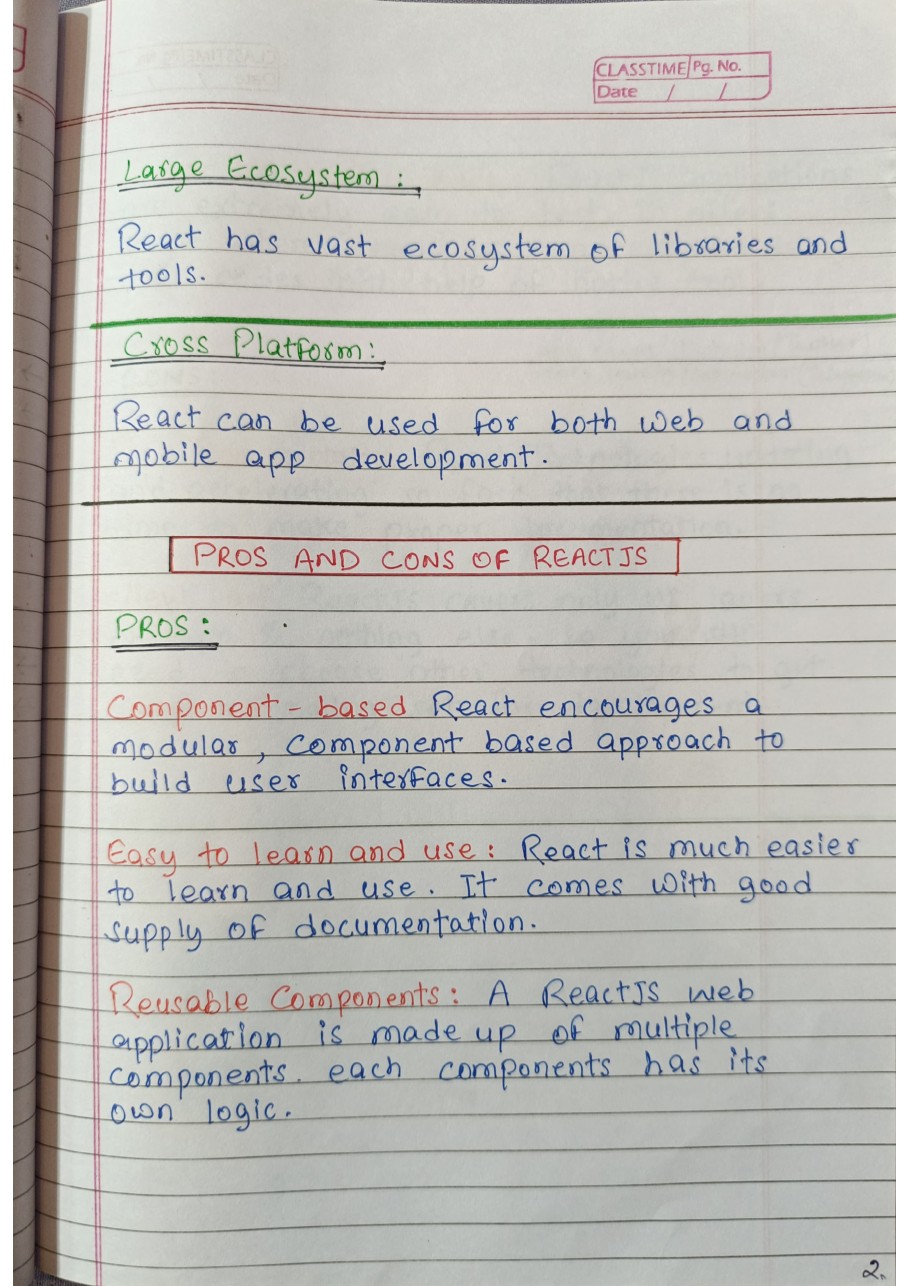 CLASSTIME Pg. No.
Date / /
Large Ecosystem :
React has vast ecosystem of libraries and
tools.
Cross Platform :
React can be used for both web and
mobile app development.
PROS AND CONS OF REACTJS
PROS :
Component - based React encourages a
modular, component based approach to
build user interfaces.
Easy to learn and use : React is much easier
to learn and use. It comes with good
supply of documentation.
Reusable Components : A ReactJS web
application is made up of multiple
components. each components has its
own logic.
2.